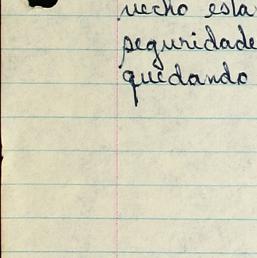 vecho esta
seguridade
quedando